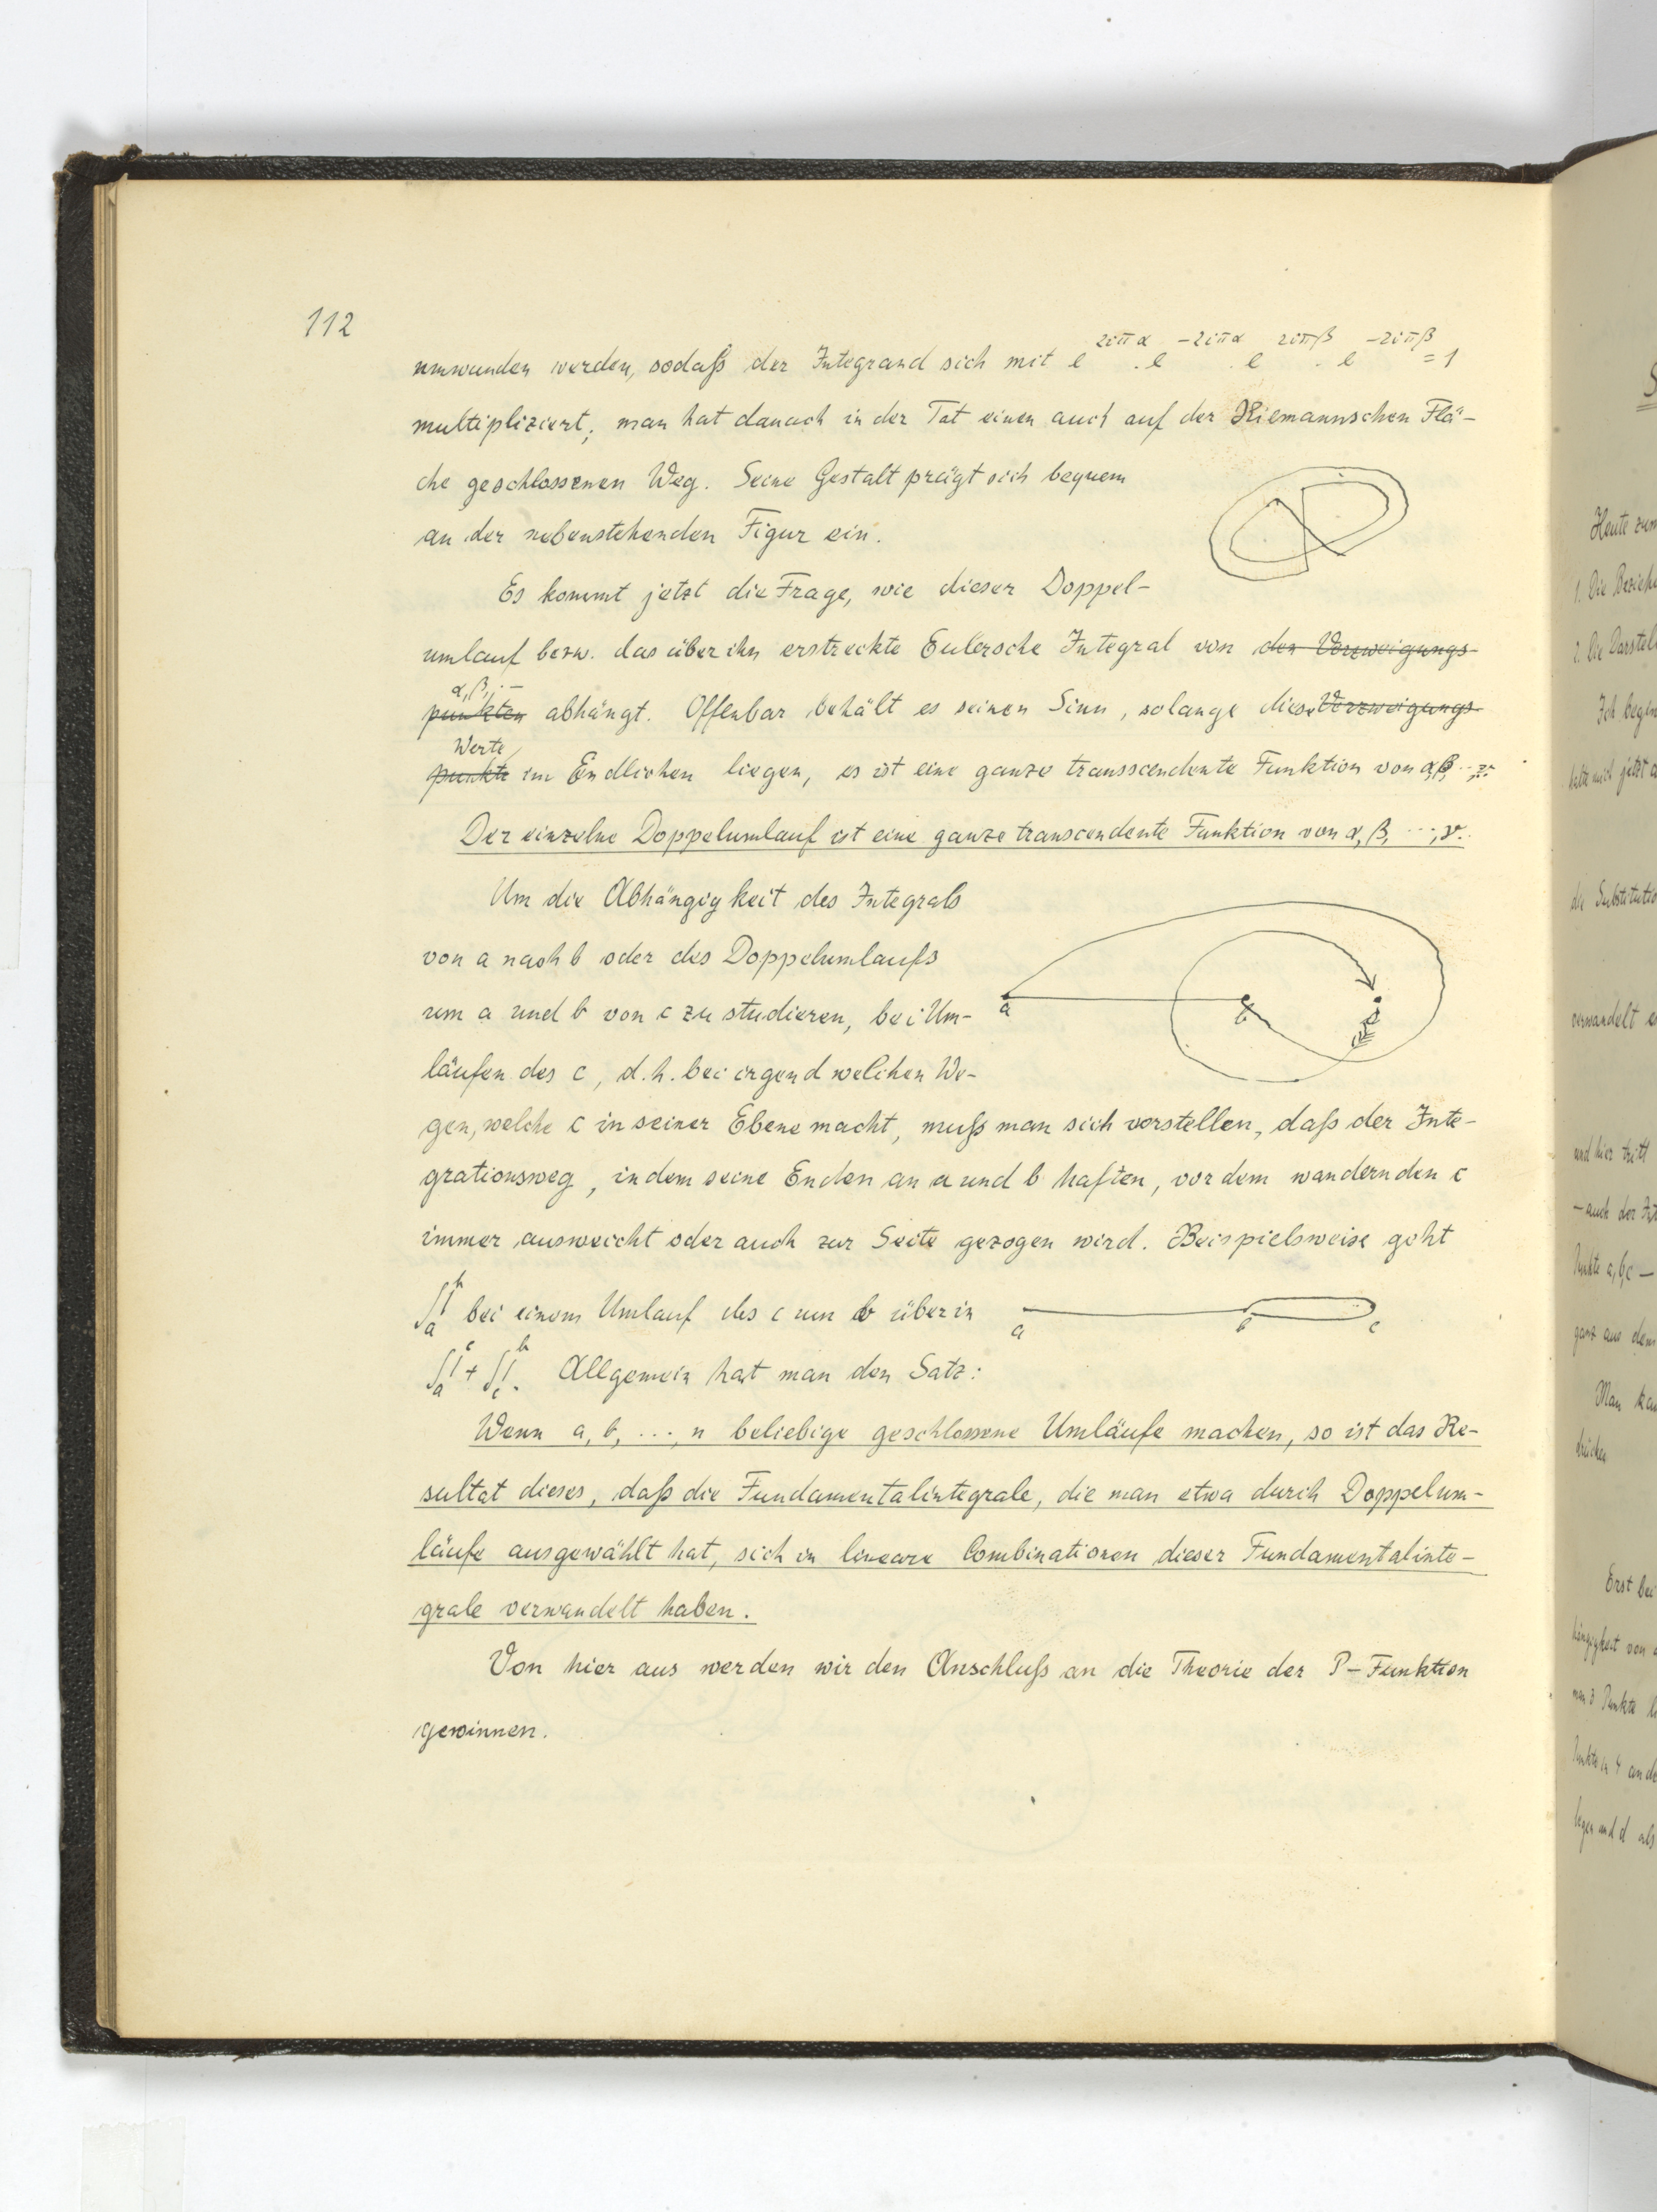 112
umwunden werden, sodaß der Integrand sich mit e^{2iπα} . e^{-2iπα} . e^{2iπβ} . e^{-2iπβ} = 1
multipliziert; man hat danach in der Tat einen auch auf der Riemannschen Flä-
che geschlossenen Weg. Seine Gestalt prägt sich bequem
an der nebenstehenden Figur ein.
Es kommt jetzt die Frage, wie dieser Doppel-
umlauf bezw. das über ihn erstreckte Eulersche Integral von den Verzweigungs-
α, β, ··
punkten abhängt. Offenbar behält es seinen Sinn, solange diese Verzweigungs-
Werte
punkte im Endlichen liegen, es ist eine ganze transscendente Funktion von α, β, ··, ν.
Der einzelne Doppelumlauf ist eine ganze transcendente Funktion von α, β, ···, ν.
Um die Abhängigkeit des Integrals
von a nach b oder des Doppelumlaufs
um a und b von c zu studieren, bei Um-
läufen des c, d.h. bei irgend welchen We-
a b c
gen, welche c in seiner Ebene macht, muß man sich vorstellen, daß der Inte-
grationsweg, indem seine Enden an a und b haften, vor dem wandernden c
immer ausweicht oder auch zur Seite gezogen wird. Beispielsweise geht
∫_a^b bei einem Umlauf des c um b über in
a b c
∫_a^c + ∫_c^b. Allgemein hat man den Satz:
Wenn a, b, ···, n beliebige geschlossene Umläufe machen, so ist das Re-
sultat dieses, daß die Fundamentalintegrale, die man etwa durch Doppelum-
läufe ausgewählt hat, sich in lineare Combinationen dieser Fundamentalinte-
grale verwandelt haben.
Von hier aus werden wir den Anschluß an die Theorie der P-Funktion
gewinnen.
Heute zum
1. Die Bezieh
2. Die Darstel
Ich begin
die Substitutio
verwandelt e
und hier tritt
Punkte a, b, c —
ganz aus dem
Man kan
drücken
Erst bei
hängigkeit von
man 3 Punkte
Punkte in 4 and
legen und d als